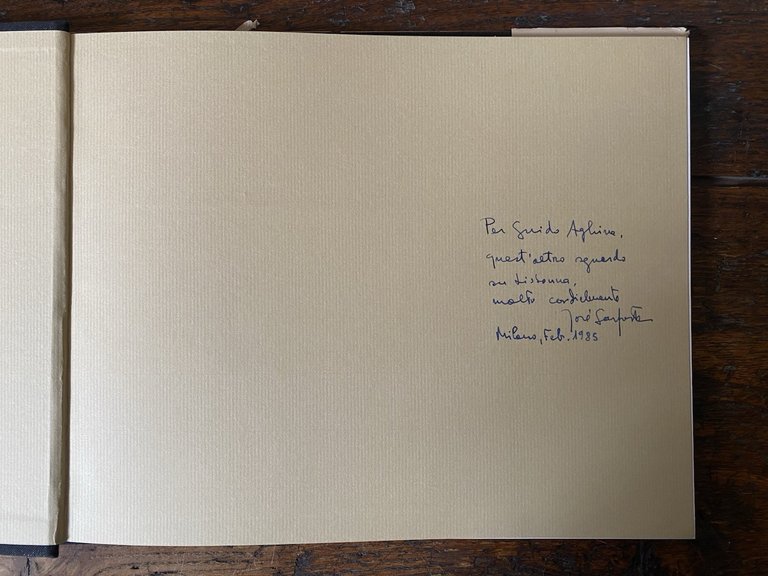 Per Guido Aghina,
quest'altro sguardo
su Lisbona,
molto cordialmente
José
Milano, Feb. 1985